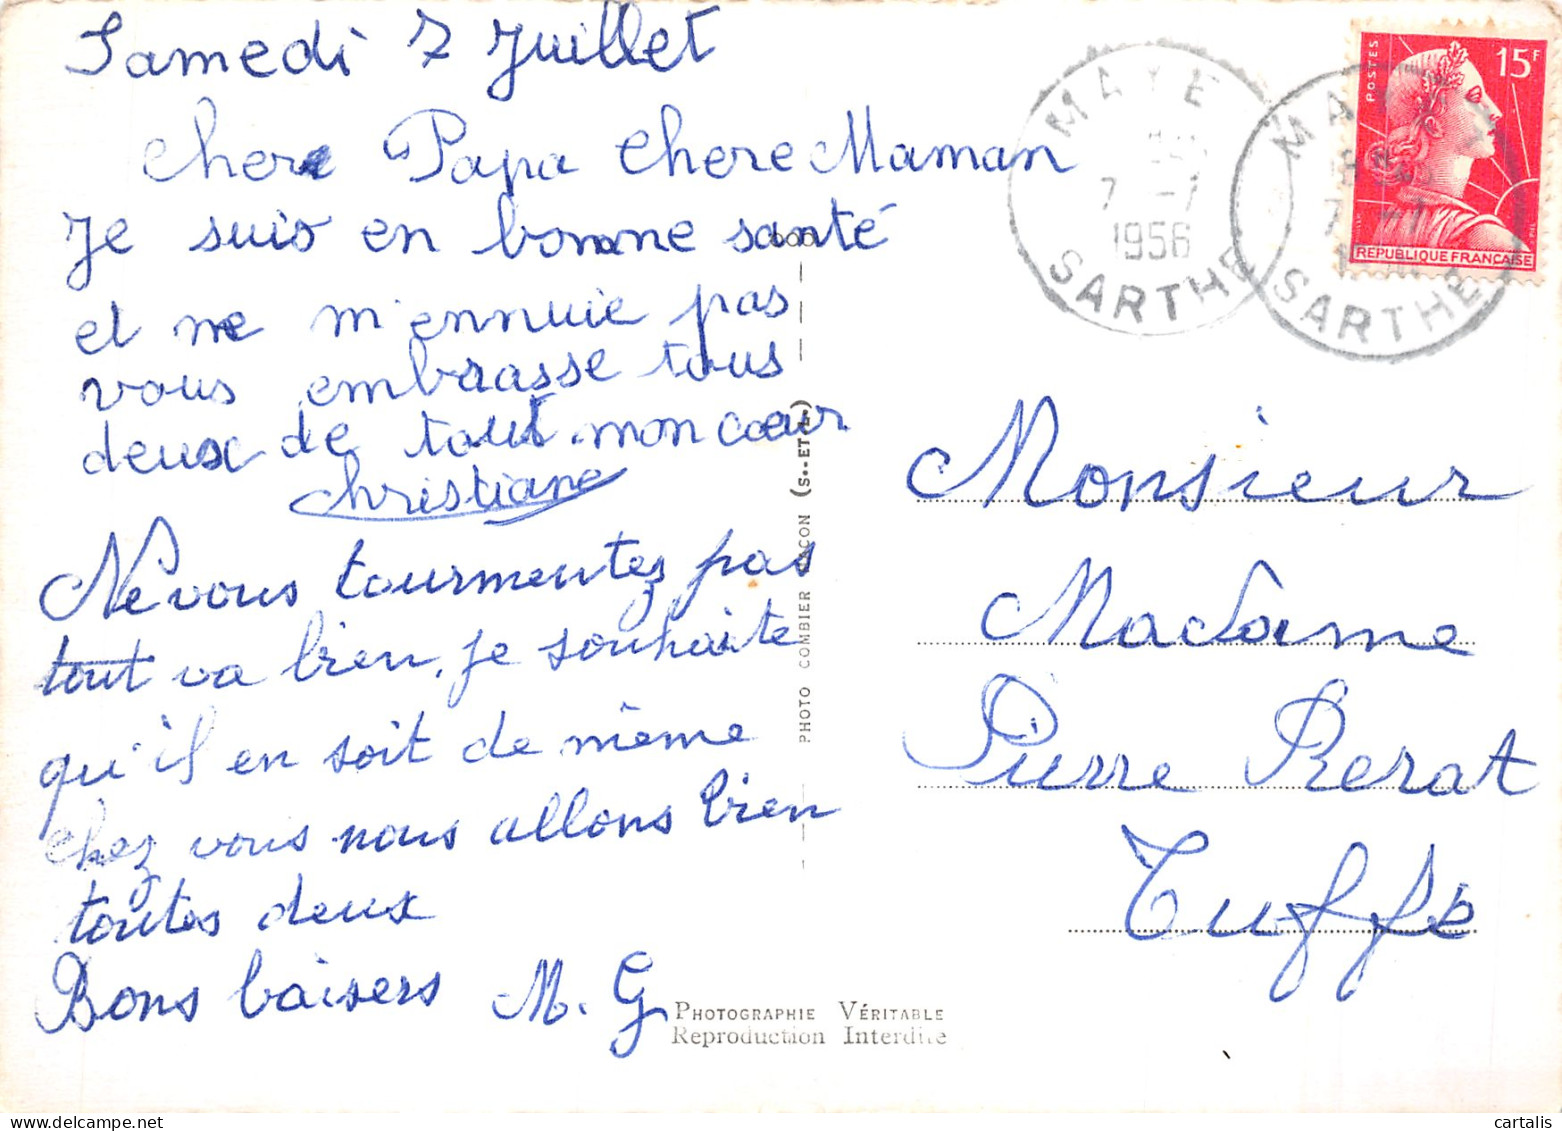 Samedi 7 Juillet
chere Papa chere Maman
Je suis en bonne santé
et ne m'ennuie pas
vous embrasse tous
deux de tout mon cœur
christiane
Ne vous tourmentez pas
tout va bien, je souhaite
qu'il en soit de même
chez vous nous allons bien
toutes deux
Bons baisers M. G
PHOTO COMBIER MACON (S.-ET-L.)
PHOTOGRAPHIE VÉRITABLE
Reproduction Interdite
MAYE
7 -7
1956
SARTHE
MA
7 -7
SARTHE
POSTES
15F
REPUBLIQUE FRANÇAISE
Monsieur
Madame
Pierre Rerat
Tuffé
cartalis